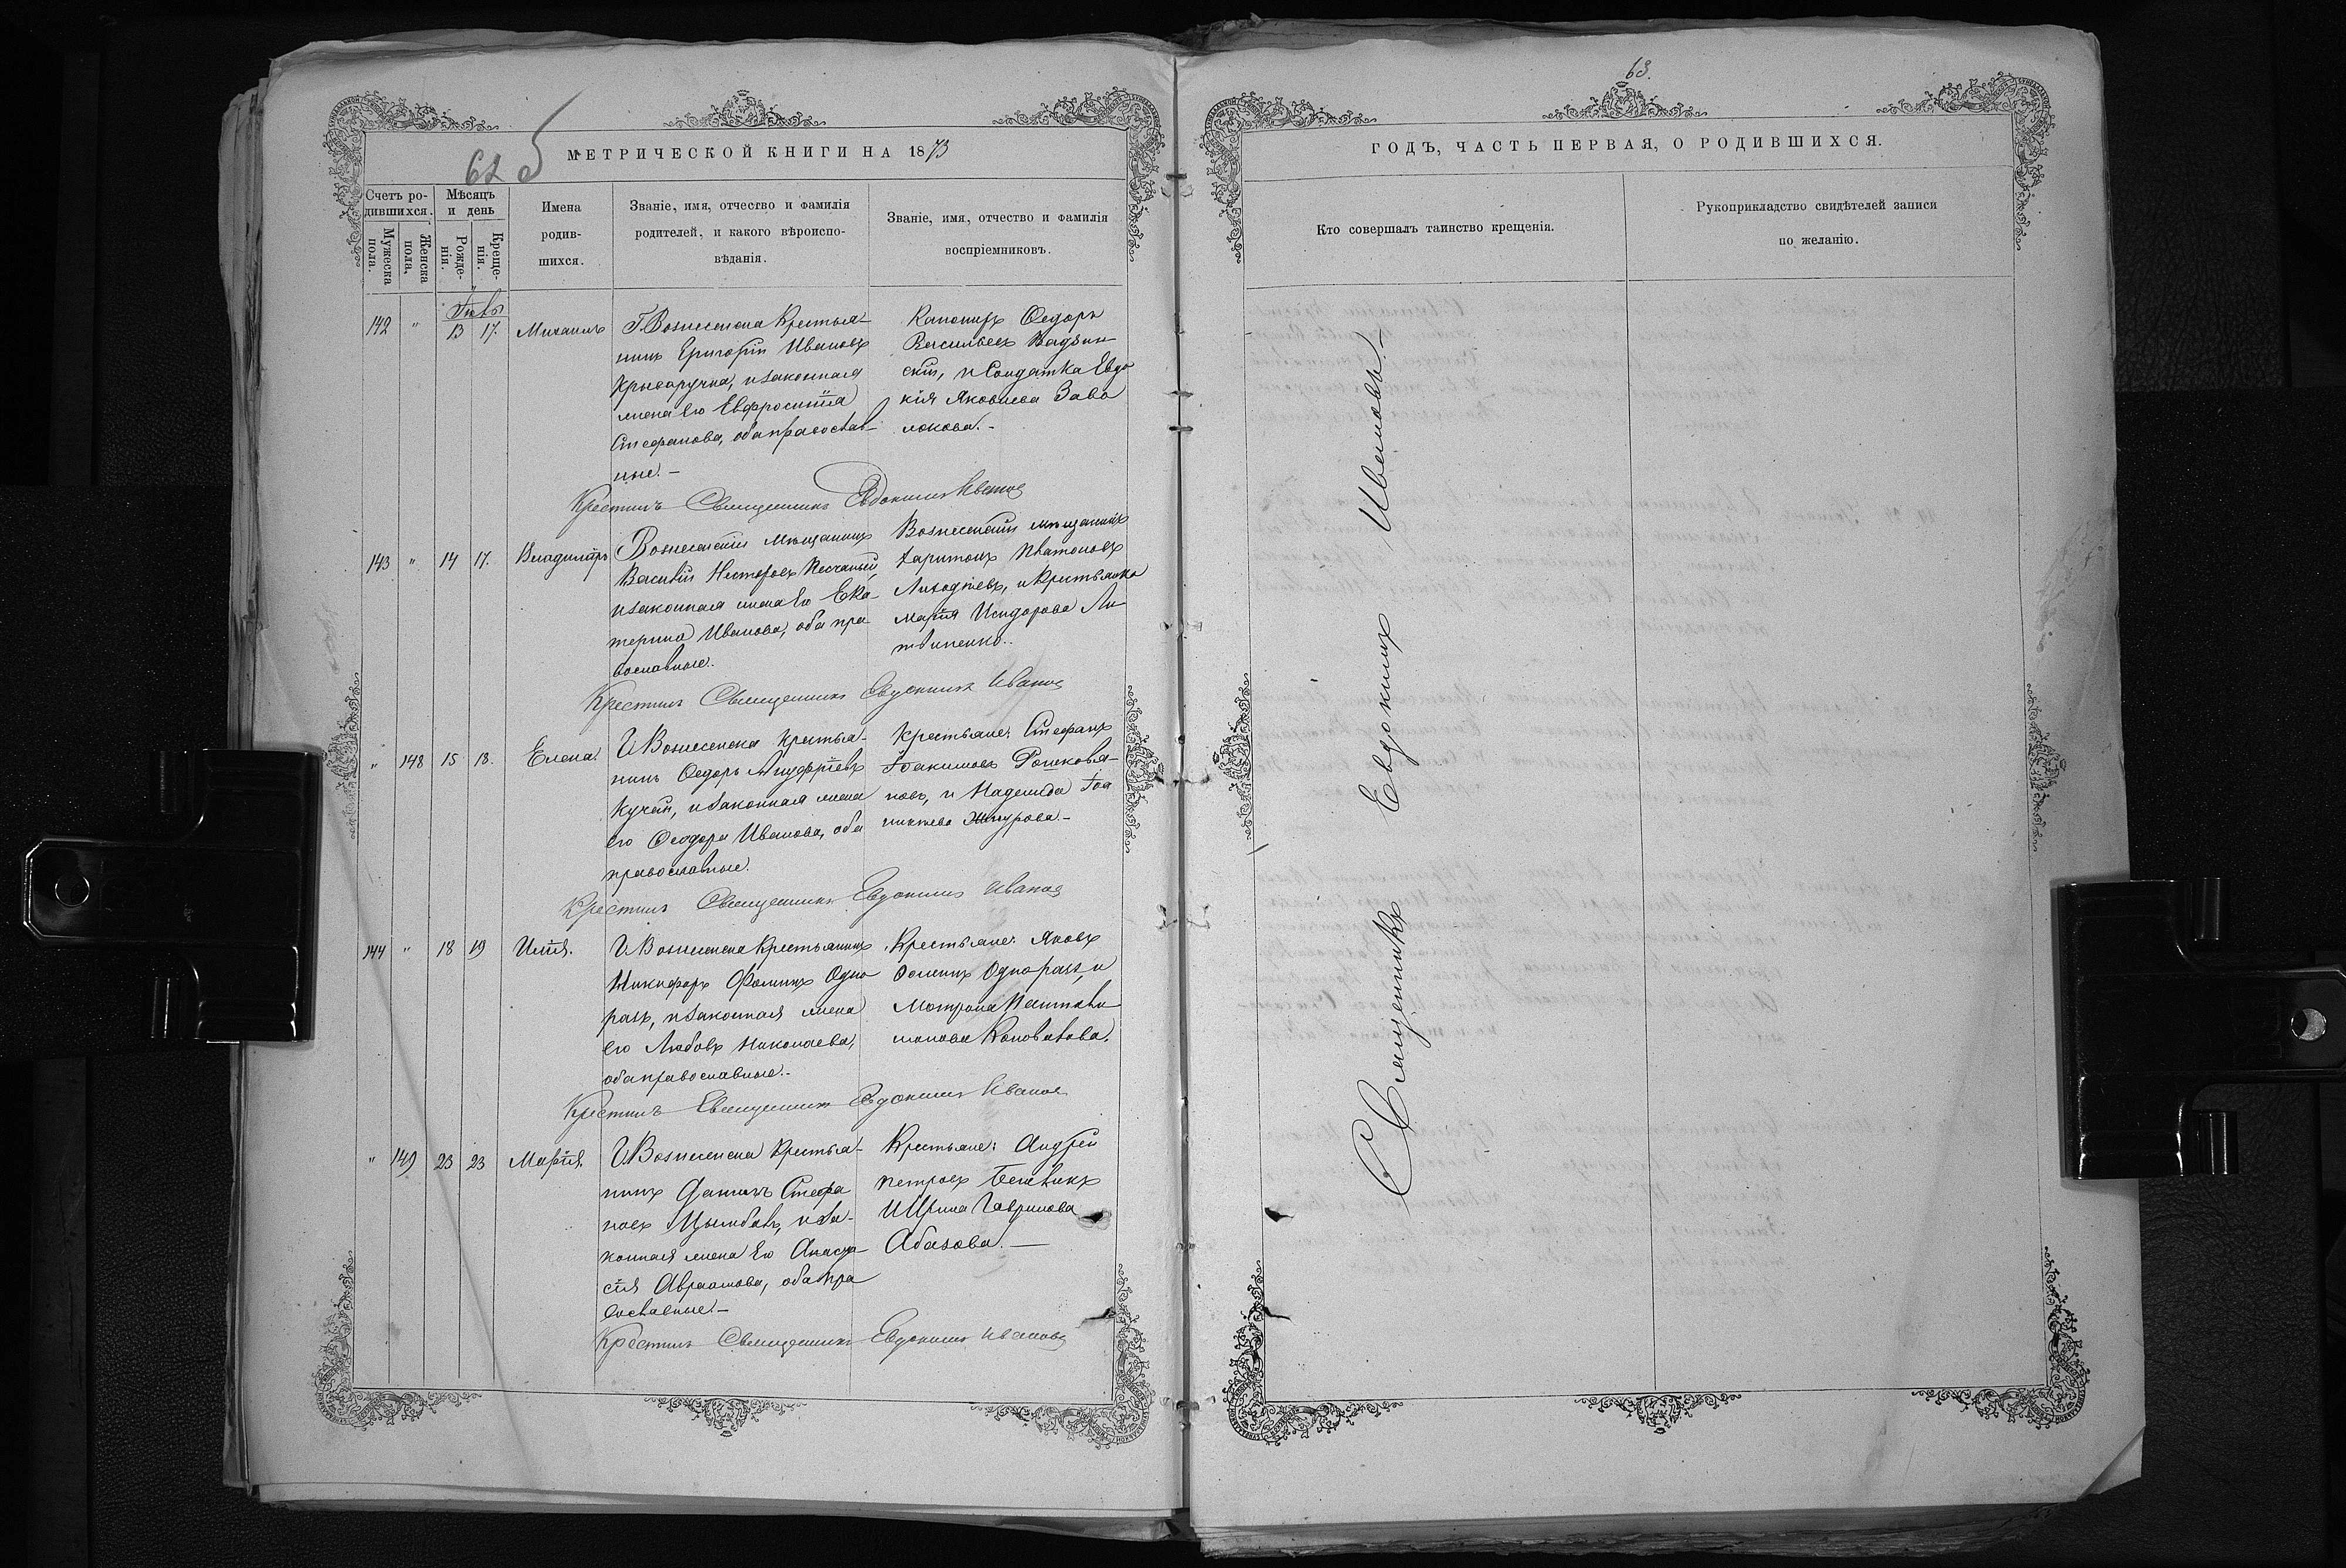 62 б
МЕТРИЧЕСКОЙ КНИГИ НА 1873
Счетъ ро-
дившихся.
Мужеска
пола.
Женска
пола.
Мѣсяцъ
и день
Рожде-
нія.
Креще-
нія.
Имена
родив-
шихся.
Званіе, имя, отчество и фамилія
родителей, и какого вѣроиспо-
вѣданія.
Званіе, имя, отчество и фамилія
воспріемниковъ.
142 " 13 17. Михаилъ
Г. Вознесенска Крестья-
нинъ Григорій Ивановъ
и законная
жена его Евфросинія
Стефанова, оба православ-
ные.-
Канониръ Ѳедоръ
Васильевъ
скій, и Солдатка Евдо
кія Яковлева Заво
локова.-
Крестилъ Священникъ Евдокимъ Ивановъ
143 " 14 17. Владиміръ
Вознесенскій Мѣщанинъ
Василій Нестеровъ Песчаный,
и законная жена его Ека
терина Ивановна, оба пра
вославные.
Вознесенскій мѣщанинъ
Харитонъ Платоновъ
и Крестьянка
Марія Исидорова Ли
твиненко..
Крестилъ Священникъ Евдокимъ Ивановъ
" 148 15 18. Елена.
Г. Вознесенска Крестья-
нинъ Ѳедоръ Онуфріевъ
Кучай, и законная жена
его Ѳеодора Иванова, оба
православные.
Крестьяне: Стефанъ
Іоакимовъ Рошковья-
новъ, и Надежда Іоа
никіева
Крестилъ Священникъ Евдокимъ Ивановъ
144 " 18 19 Илія.
Г. Вознесенска Крестьянинъ
Никифоръ Ѳоминъ Одно
разъ, и законная жена
его Любовь Николаева,
оба православные.-
Крестьяне: Яковъ
Ѳоминъ Одноразъ, и
Матрона Пантелеи
монова Коновалова.
Крестилъ Священникъ Евдокимъ Ивановъ
" 149 23 23 Марія.
Г. Вознесенска Крестья-
нинъ Даніилъ Стефа
новъ Цымбалъ, и за-
конная жена его Анаста
сія Авраамова, оба пра
вославные.-
Крестьяне: Андрей
Петровъ
и Ирина Гаврилова
Абазова.-
Крестилъ Священникъ Евдокимъ Ивановъ
63.
ГОДЪ, ЧАСТЬ ПЕРВАЯ, О РОДИВШИХСЯ.
Кто совершалъ таинство крещенія.
Рукоприкладство свидѣтелей записи
по желанію.
Священникъ Евдокимъ Ивановъ.-